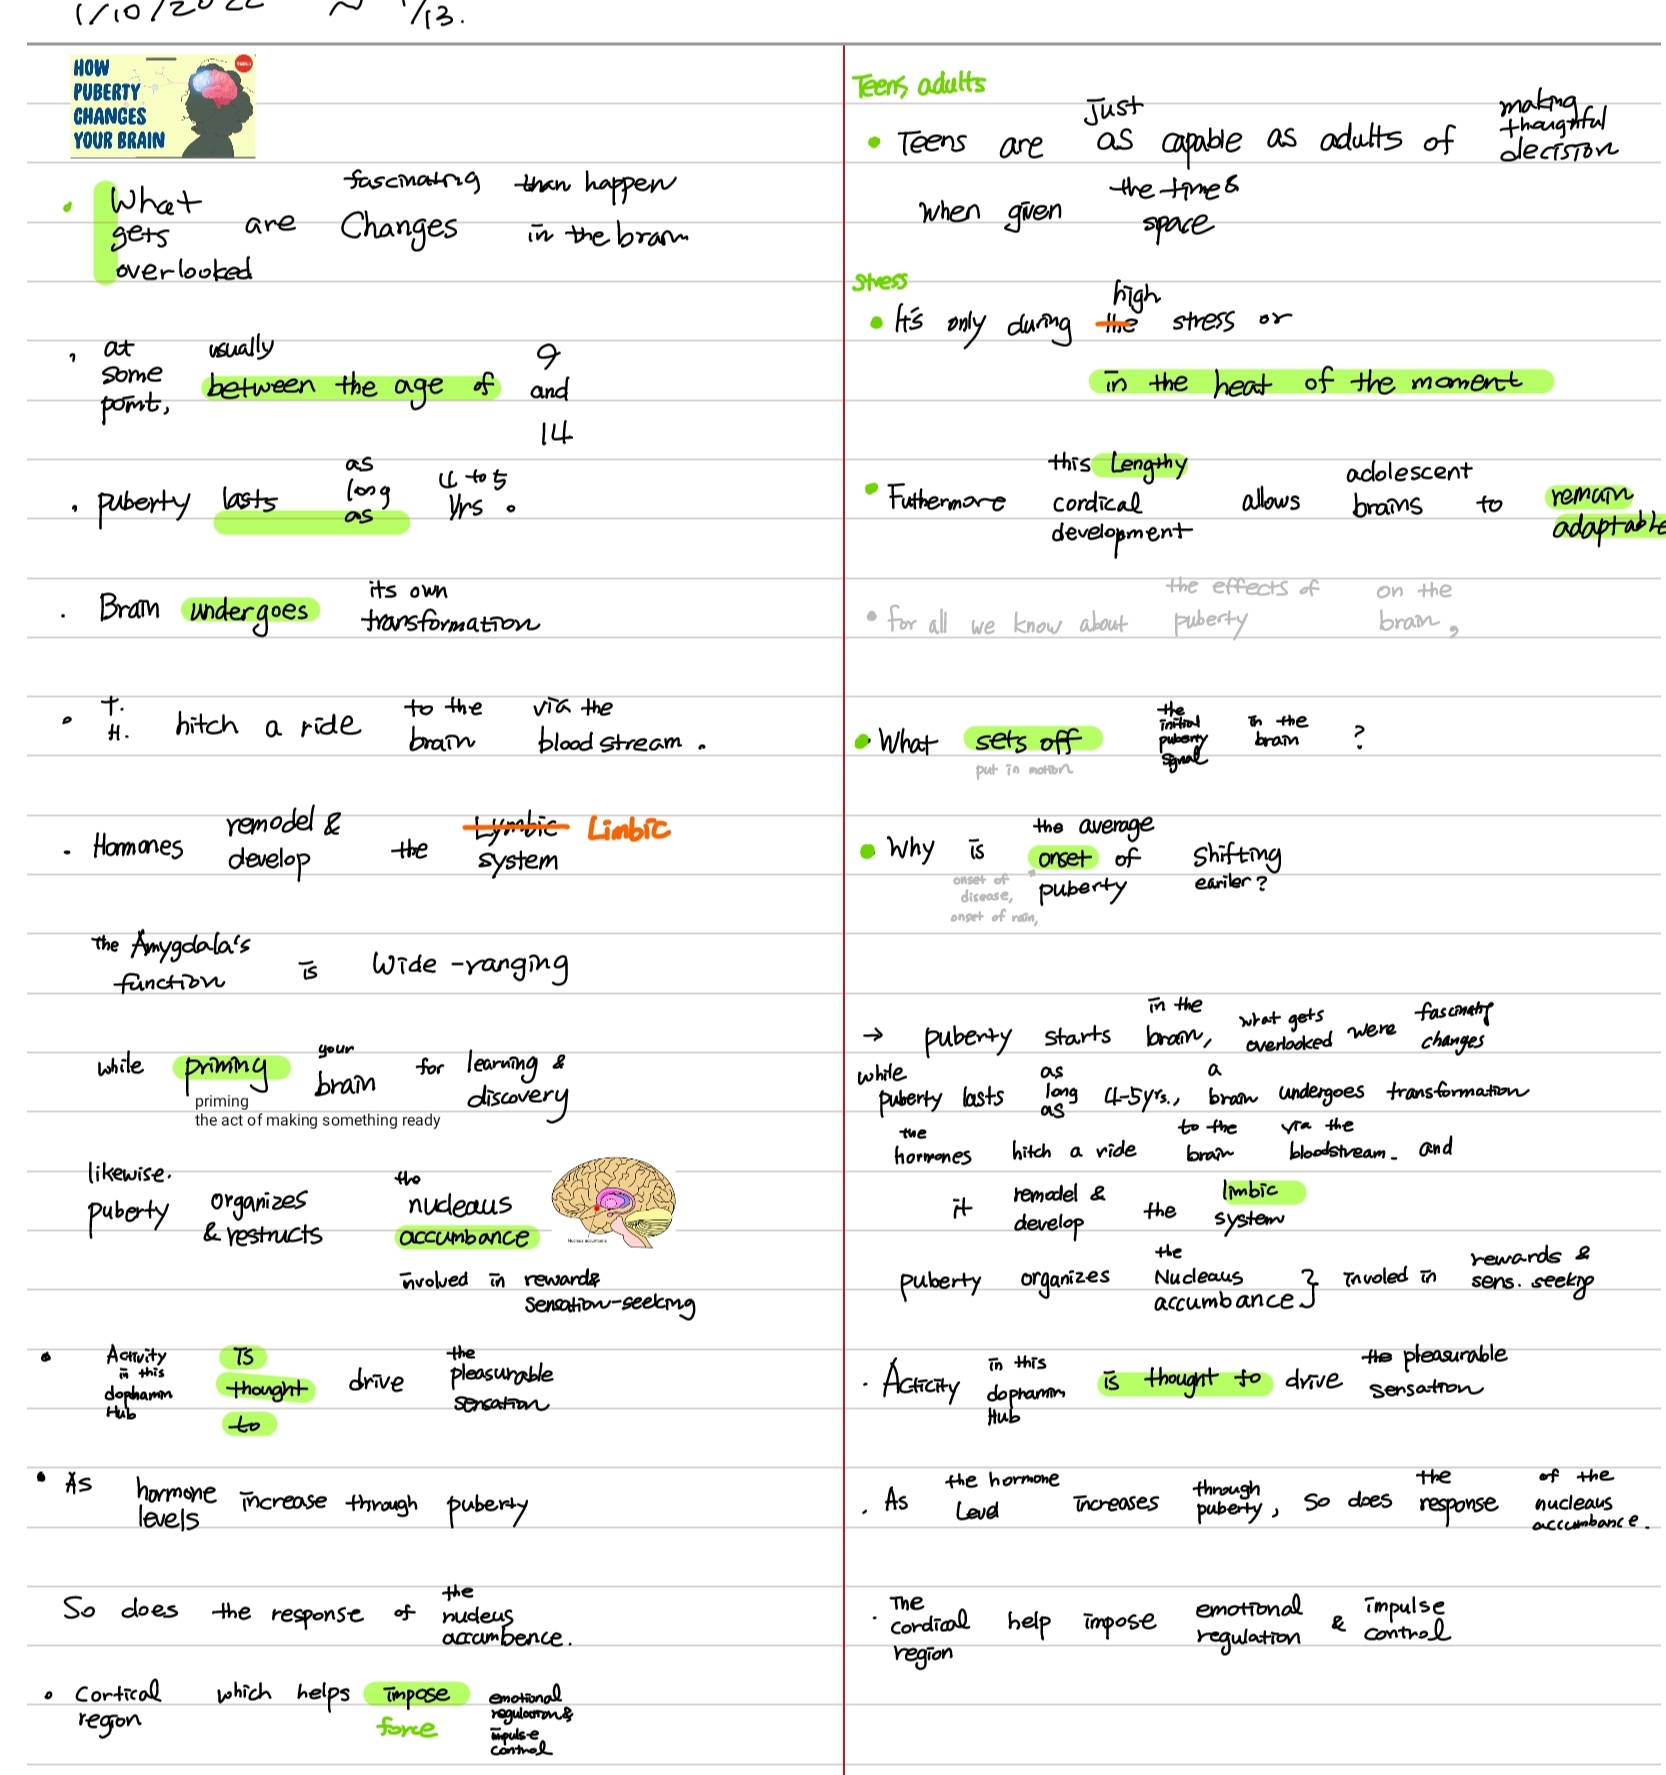 1/10/2022 ~ 1/13.
HOW
PUBERTY
CHANGES
YOUR BRAIN
What gets overlooked are fascinating Changes than happen in the brain
at some point, usually between the age of 9 and 14
puberty lasts as long as 4 to 5 yrs.
Brain undergoes its own transformation
T. H. hitch a ride to the brain via the blood stream.
Hormones remodel & develop the Lymbic Limbic system
the Amygdala's function is wide-ranging
while priming your brain for learning & discovery
priming
the act of making something ready
likewise. puberty organizes & restructs the nucleaus accumbance
Nucleus accumbens
involved in reward & sensation-seeking
Activity in this dophamin Hub is thought to drive the pleasurable sensation
As hormone levels increase through puberty
So does the response of the nucleus accumbence.
Cortical region which helps impose emotional regulation & impulse control
force
Teens, adults
Teens are just as capable as adults of making thoughtful decision
when given the time & space
Stress
It's only during the high stress or
in the heat of the moment
Futhermore this Lengthy cordical development allows adolescent brains to remain adaptable
for all we know about the effects of puberty on the brain,
What sets off the initial puberty signal in the brain ?
put in motion
Why is the average onset of puberty shifting eariler?
onset of disease,
onset of rain,
→ puberty starts in the brain, what gets overlooked were fascinating changes
while puberty lasts as long as 4-5yrs., a brain undergoes transformation
the hormones hitch a ride to the brain via the bloodstream. and
it remodel & develop the limbic system
puberty organizes the Nucleaus accumbance } involed in rewards & sens. seeking
Acticity in this dophamin Hub is thought to drive the pleasurable sensation
As the hormone Level increases through puberty, so does the response of the nucleaus accumbance.
The cordical region help impose emotional regulation & impulse control